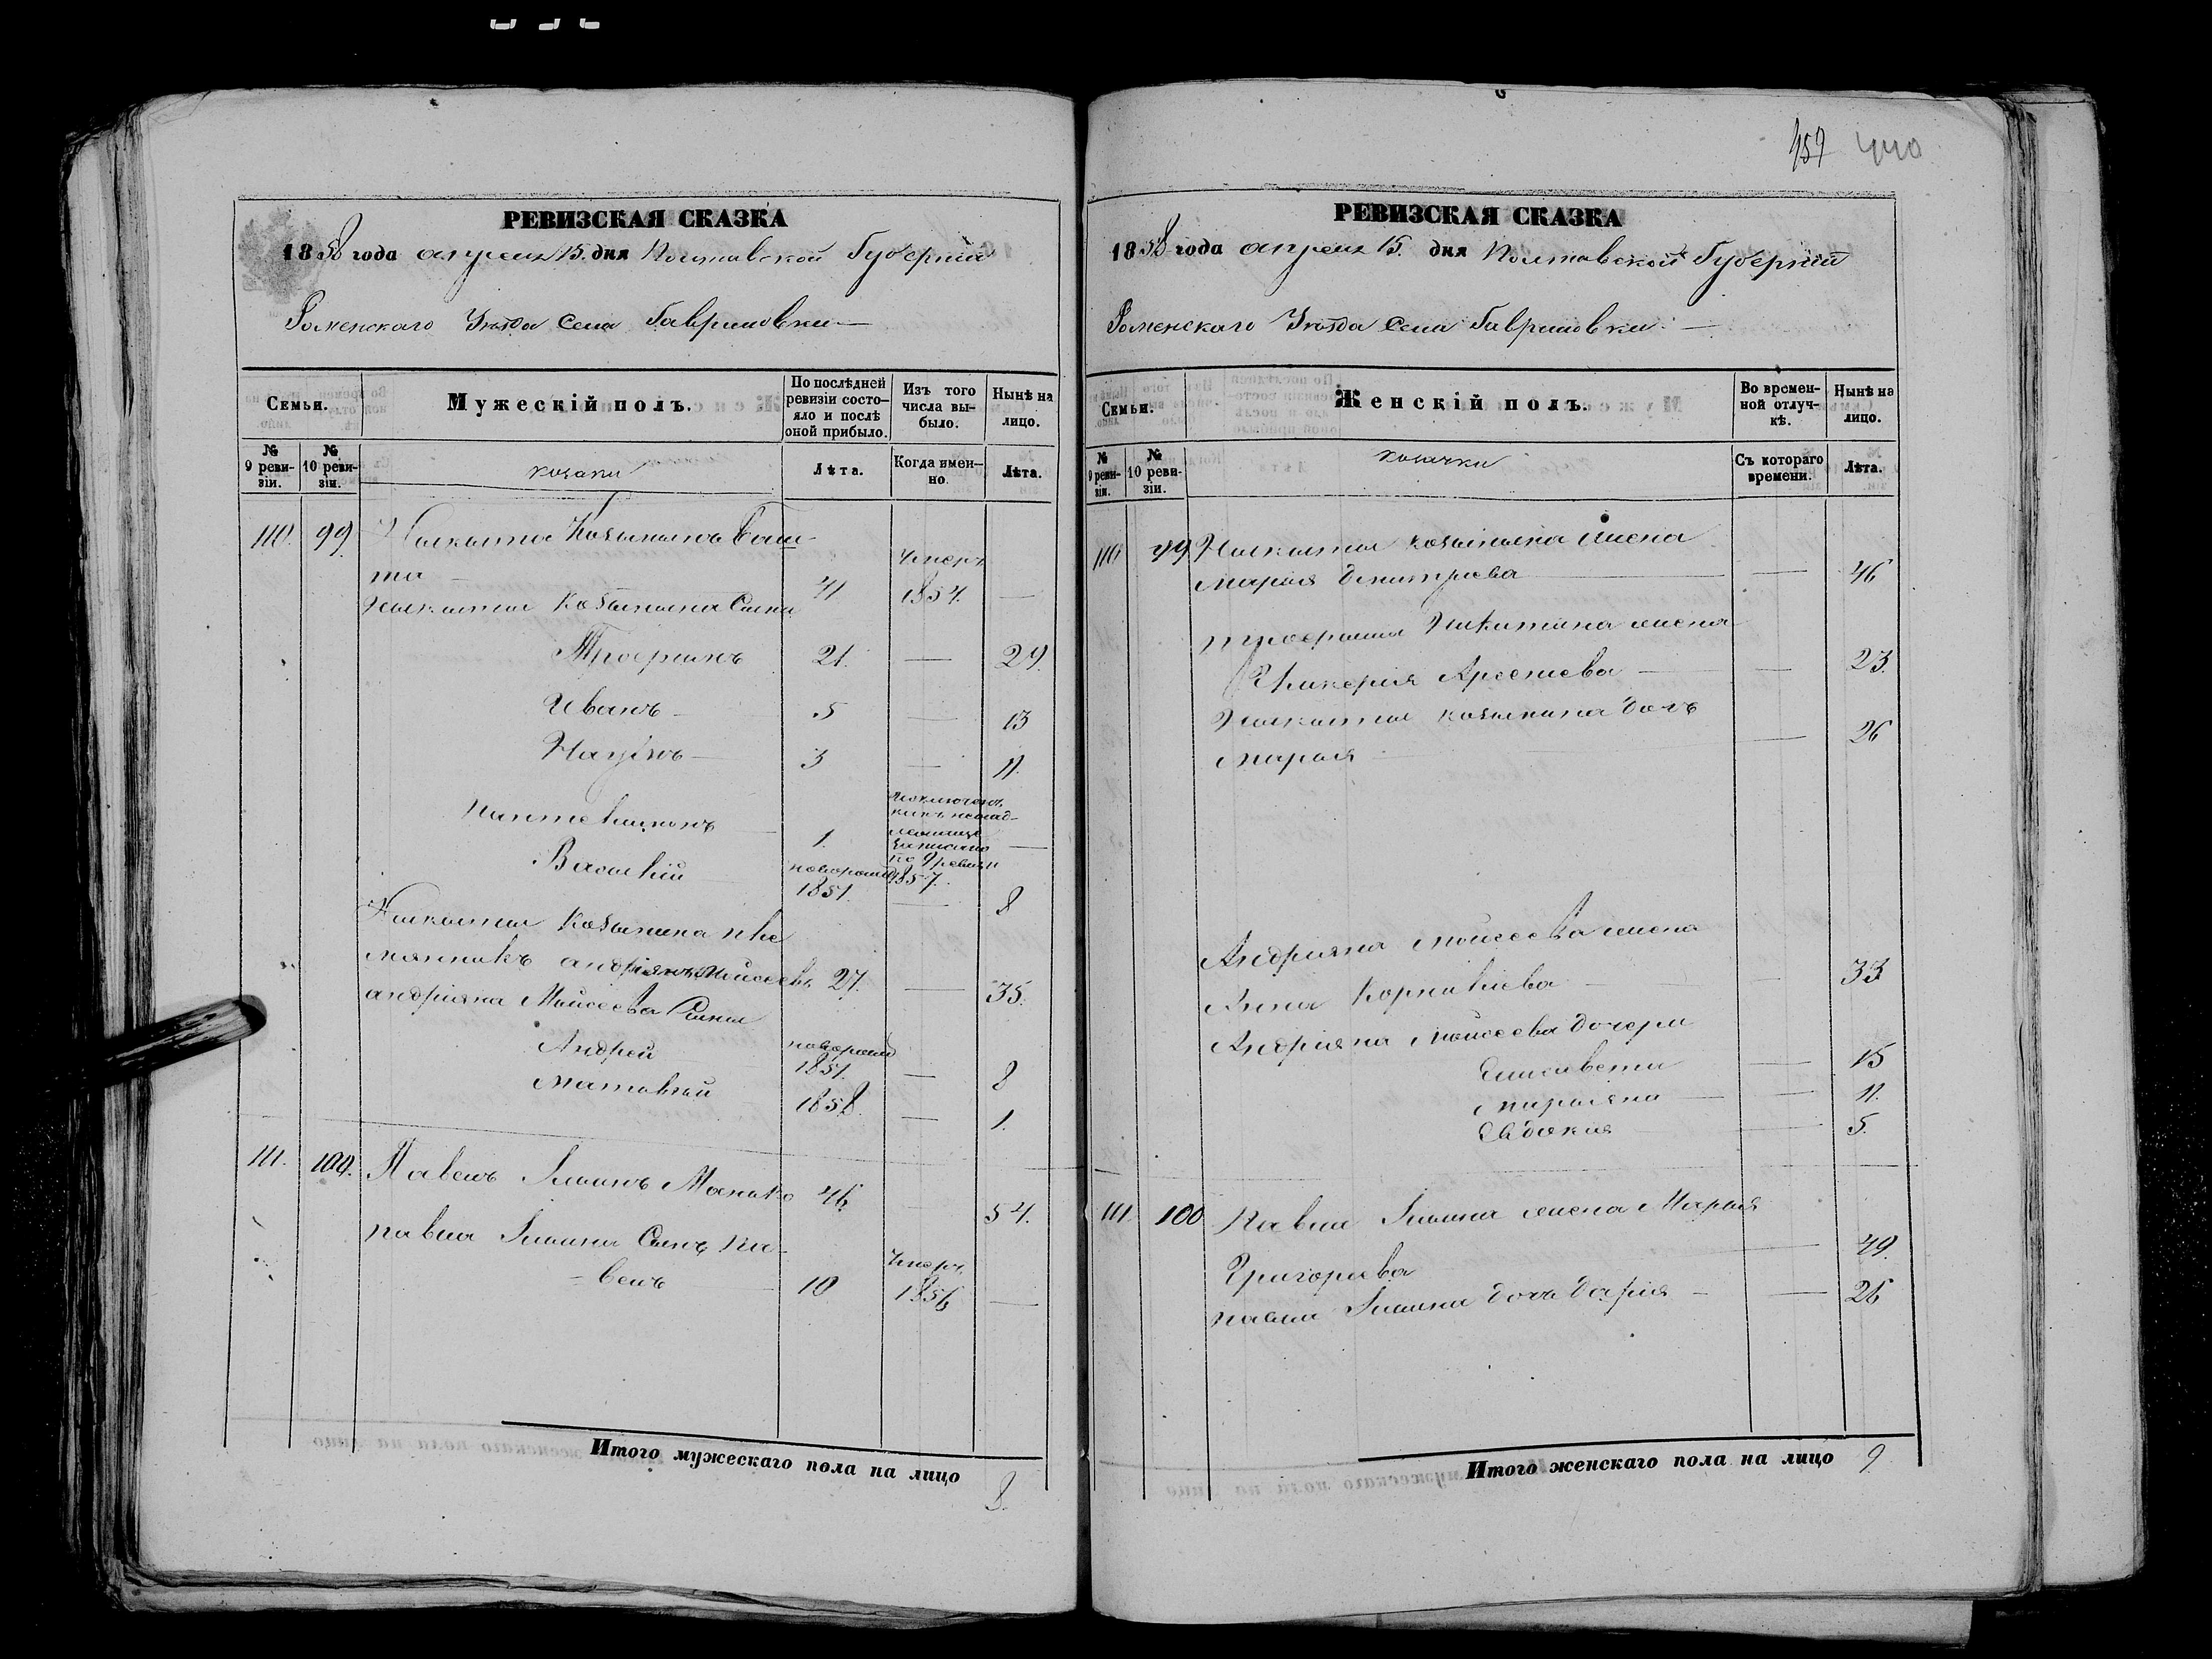 459 440
РЕВИЗСКАЯ СКАЗКА
1858 года апреля 15. дня Полтавской Губерніи
Роменского Уезда Села Гавриловки
Семьи.
Мужескій полъ.
По послѣдней ревизіи состояло и послѣ оной прибыло.
Изъ того числа выбыло.
Нынѣ на лицо.
№ 9 ревизіи.
№ 10 ревизіи.
козаки
Лѣта.
Когда именно.
Лѣта.
110. 99. Никита Козьминъ
та 41 Умеръ 1854. —
Никиты Козьмина Сыны
Трофимъ 21. — 29.
Иванъ 5 — 13
Наумъ 3 — 11.
Пантелимонъ 1. исключенъ
записанъ
по 9 ревизіи
1857. —
Василій новорожд 1851. — 8
Никиты Козьмина пле
мянникъ андріянъ Моисеевъ 27. — 35.
андріяна Моисеева Сыны
Андрей новорожд 1851. — 8
Матвѣй 1858. — 1.
111. 100. Павелъ 46 54.
Павла Сынъ Па-
велъ 10 Умеръ 1856 —
Итого мужескаго пола на лицо 8.
РЕВИЗСКАЯ СКАЗКА
1858 года апреля 15. дня Полтавской Губерніи
Роменского Уезда Села Гавриловки. —
Семьи.
Женскій полъ.
Во временной отлучкѣ.
Нынѣ на лицо.
№ 9 ревизіи.
№ 10 ревизіи.
козачки
Съ котораго времени.
Лѣта.
110 99. Никиты Козьмина жена
Марія Дмитріева — 46
Трофима Никитина жена
Гликерія Арсеніева — 23.
Никиты Козьмина дочь
Марія — 26
Андріяна Моисеева жена
Анна Корниліева — 33
Андріяна Моисеева дочери
Елисавета — 15
Маріяна — 11.
Евдокия — 5.
111. 100 Павла жена Марья
Григорьева — 49.
Павла дочь Дарія — 26
Итого женскаго пола на лицо 9.